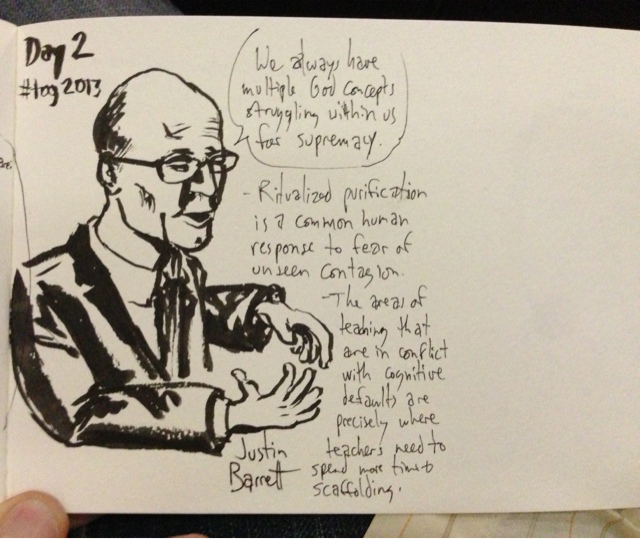 Day 2
#tog2013
We always have
multiple God concepts
struggling within us
for supremacy.
- Ritualized purification
is a common human
response to fear of
unseen contagion.
- The areas of
teaching that
are in conflict
with cognitive
defaults are
precisely where
teachers need to
spend more time
scaffolding.
Justin
Barrett